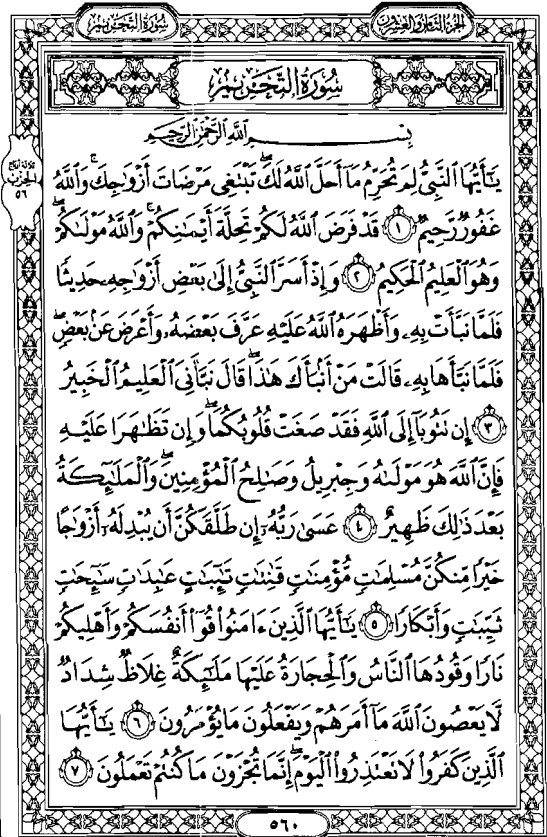 سُورَةُ التَّحْرِيمِ
الجُزْءُ الثَّامِنُ وَالعِشْرُونَ
سُورَةُ التَّحْرِيمِ
بِسْمِ اللَّهِ الرَّحْمَٰنِ الرَّحِيمِ
يَٰٓأَيُّهَا ٱلنَّبِىُّ لِمَ تُحَرِّمُ مَآ أَحَلَّ ٱللَّهُ لَكَ ۖ تَبْتَغِى مَرْضَاتَ أَزْوَٰجِكَ ۚ وَٱللَّهُ
غَفُورٌ رَّحِيمٌ ١ قَدْ فَرَضَ ٱللَّهُ لَكُمْ تَحِلَّةَ أَيْمَٰنِكُمْ ۚ وَٱللَّهُ مَوْلَىٰكُمْ ۖ
وَهُوَ ٱلْعَلِيمُ ٱلْحَكِيمُ ٢ وَإِذْ أَسَرَّ ٱلنَّبِىُّ إِلَىٰ بَعْضِ أَزْوَٰجِهِۦ حَدِيثًا
فَلَمَّا نَبَّأَتْ بِهِۦ وَأَظْهَرَهُ ٱللَّهُ عَلَيْهِ عَرَّفَ بَعْضَهُۥ وَأَعْرَضَ عَنۢ بَعْضٍ ۖ
فَلَمَّا نَبَّأَهَا بِهِۦ قَالَتْ مَنْ أَنۢبَأَكَ هَٰذَا ۖ قَالَ نَبَّأَنِىَ ٱلْعَلِيمُ ٱلْخَبِيرُ
٣ إِن تَتُوبَآ إِلَى ٱللَّهِ فَقَدْ صَغَتْ قُلُوبُكُمَا ۖ وَإِن تَظَٰهَرَا عَلَيْهِ
فَإِنَّ ٱللَّهَ هُوَ مَوْلَىٰهُ وَجِبْرِيلُ وَصَٰلِحُ ٱلْمُؤْمِنِينَ ۖ وَٱلْمَلَٰٓئِكَةُ
بَعْدَ ذَٰلِكَ ظَهِيرٌ ٤ عَسَىٰ رَبُّهُۥٓ إِن طَلَّقَكُنَّ أَن يُبْدِلَهُۥٓ أَزْوَٰجًا
خَيْرًا مِّنكُنَّ مُسْلِمَٰتٍ مُّؤْمِنَٰتٍ قَٰنِتَٰتٍ تَٰٓئِبَٰتٍ عَٰبِدَٰتٍ سَٰٓئِحَٰتٍ
ثَيِّبَٰتٍ وَأَبْكَارًا ٥ يَٰٓأَيُّهَا ٱلَّذِينَ ءَامَنُوا۟ قُوٓا۟ أَنفُسَكُمْ وَأَهْلِيكُمْ
نَارًا وَقُودُهَا ٱلنَّاسُ وَٱلْحِجَارَةُ عَلَيْهَا مَلَٰٓئِكَةٌ غِلَاظٌ شِدَادٌ
لَّا يَعْصُونَ ٱللَّهَ مَآ أَمَرَهُمْ وَيَفْعَلُونَ مَا يُؤْمَرُونَ ٦ يَٰٓأَيُّهَا
ٱلَّذِينَ كَفَرُوا۟ لَا تَعْتَذِرُوا۟ ٱلْيَوْمَ ۖ إِنَّمَا تُجْزَوْنَ مَا كُنتُمْ تَعْمَلُونَ ٧
الحزب
٥٦
٥٦٠